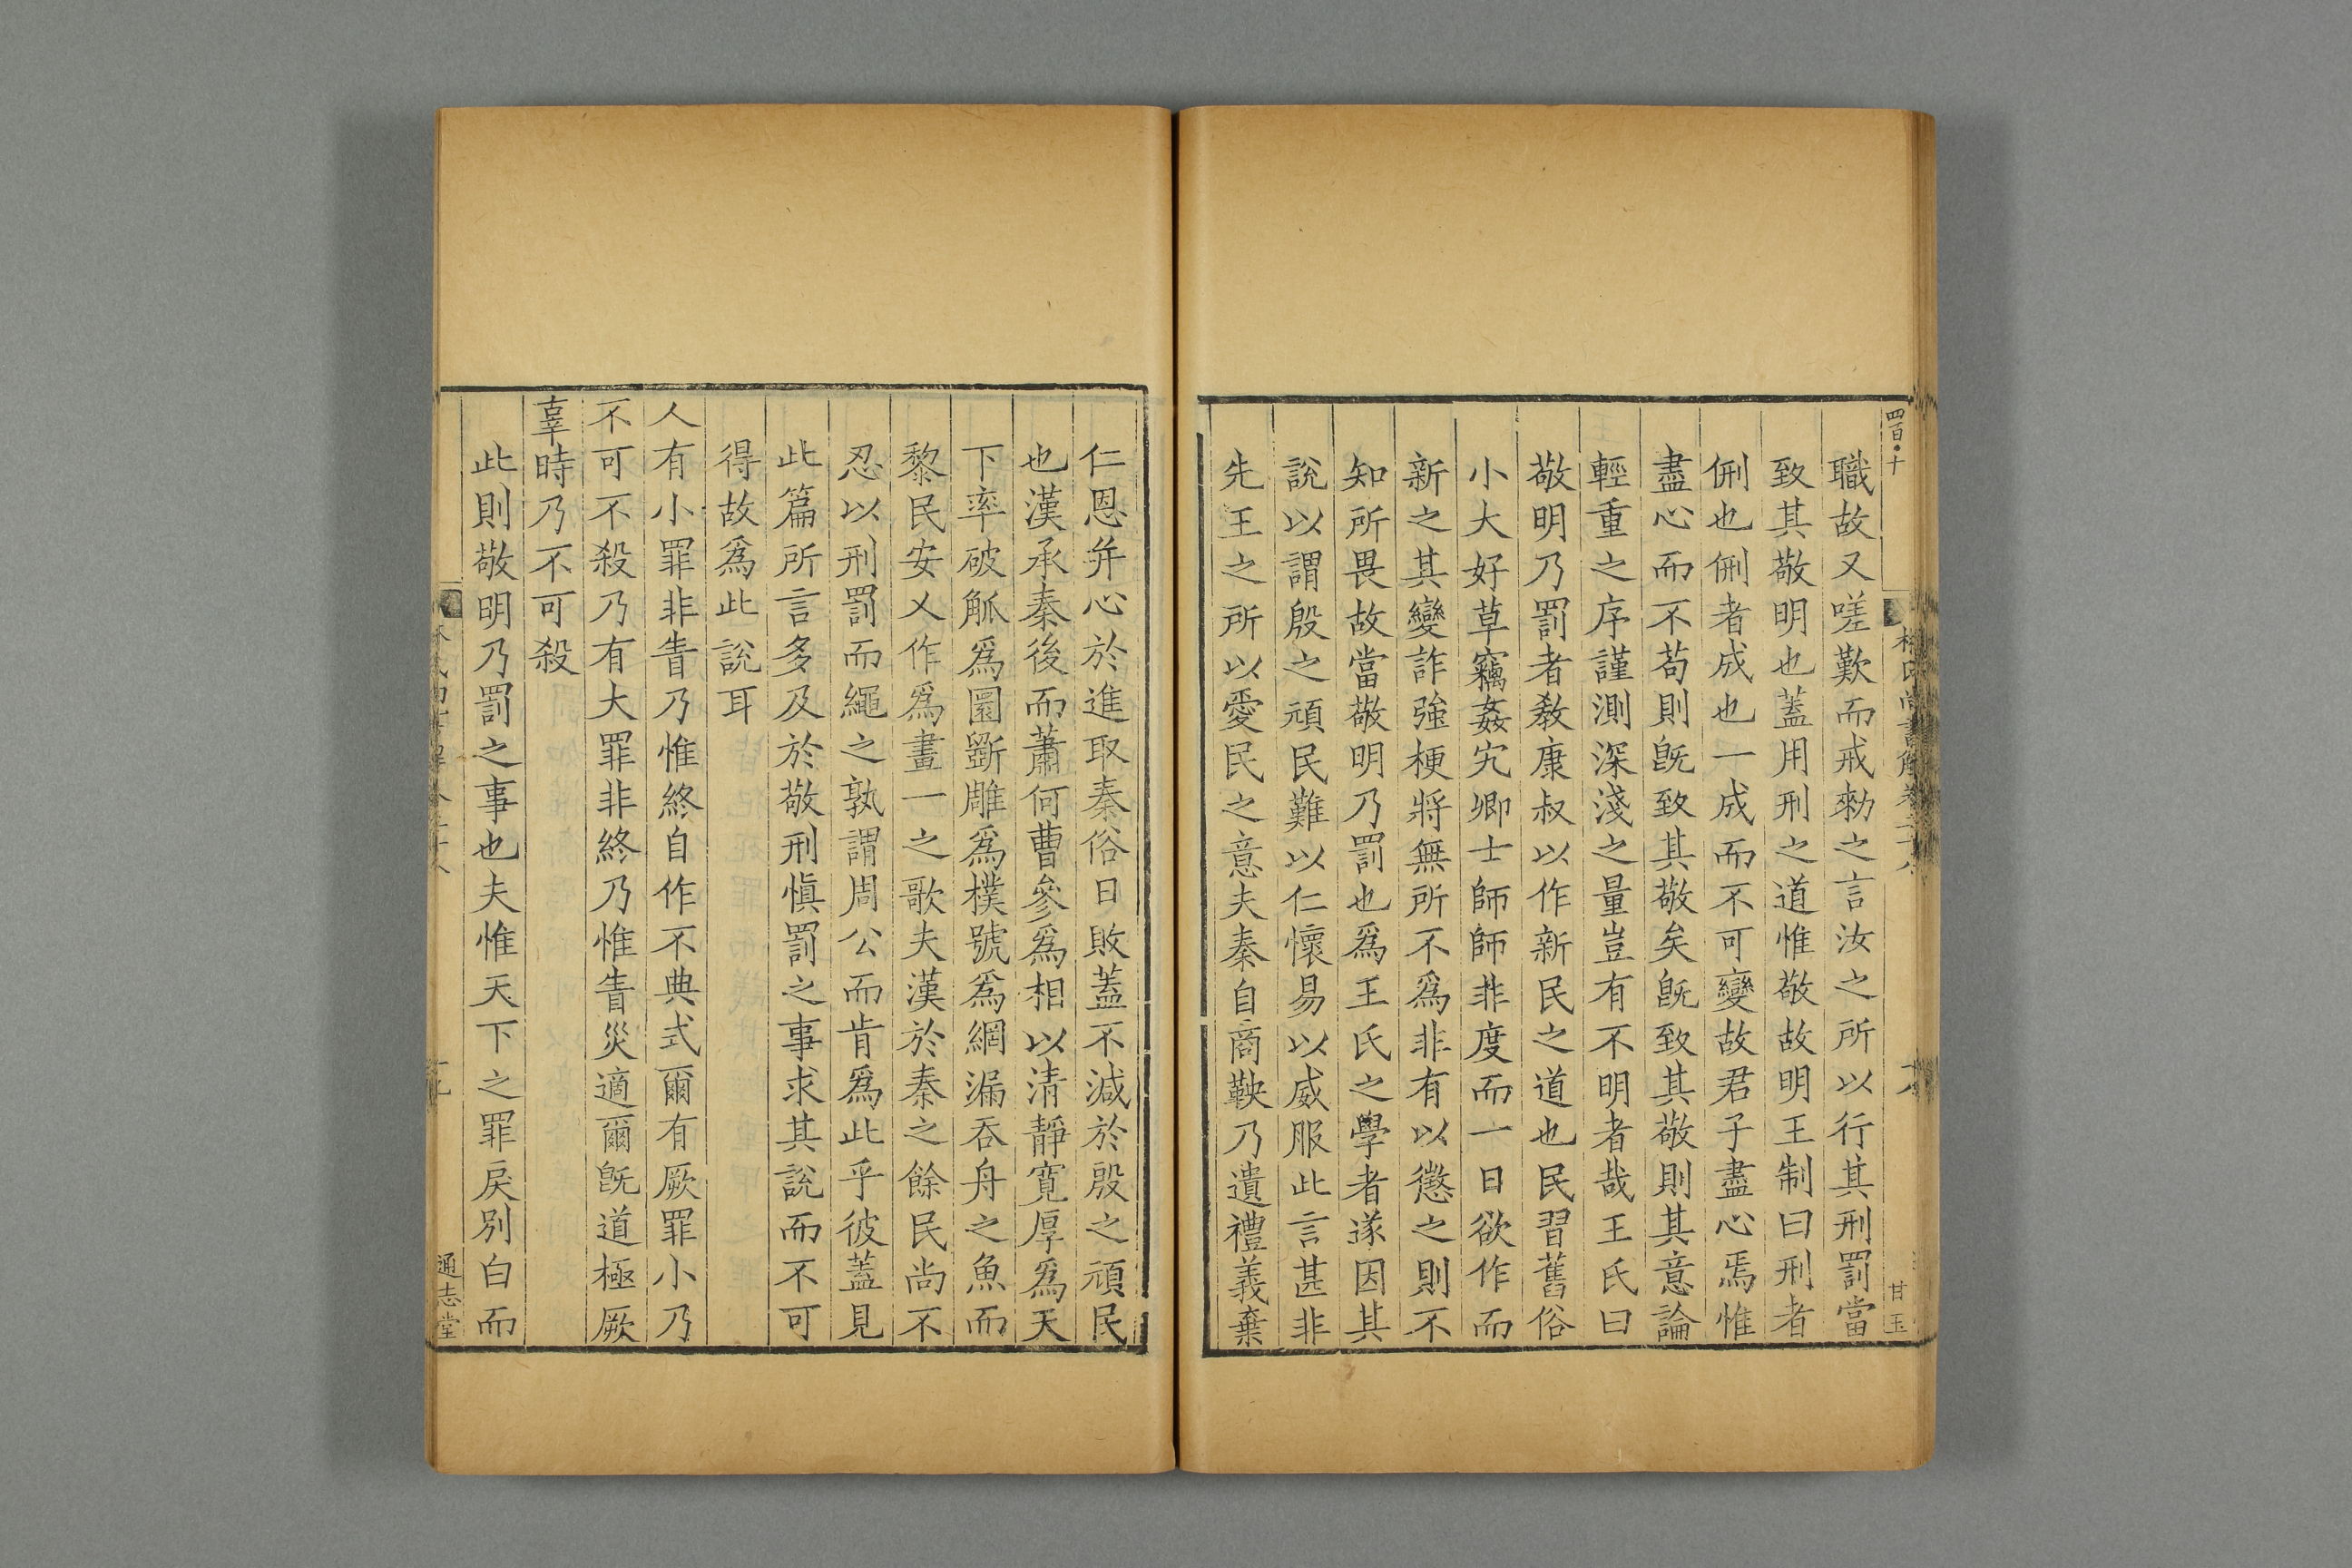 四百十
職故又嗟歎而戒勑之言汝之所以行其刑罰當
致其敬明也蓋用刑之道惟敬故明王制曰刑者
侀也侀者成也一成而不可變故君子盡心焉惟
盡心而不苟則旣致其敬矣旣致其敬則其意論
輕重之序謹測深淺之量豈有不明者哉王氏曰
敬明乃罰者敎康叔以作新民之道也民習舊俗
小大好草竊姦宄卿士師師非度而一日欲作而
新之其變詐強梗將無所不爲非有以懲之則不
知所畏故當敬明乃罰也爲王氏之學者遂因其
說以謂殷之頑民難以仁懷易以威服此言甚非
先王之所以愛民之意夫秦自商鞅乃遺禮義棄
仁恩弁心於進取秦俗日敗蓋不減於殷之頑民
也漢承秦後而蕭何曹參爲相以清靜寬厚爲天
下率破觚爲圜斵雕爲樸號爲網漏吞舟之魚而
黎民安乂作爲畫一之歌夫漢於秦之餘民尚不
忍以刑罰而繩之孰謂周公而肯爲此乎彼蓋見
此篇所言多及於敬刑愼罰之事求其說而不可
得故爲此說耳
人有小罪非眚乃惟終自作不典式爾有厥罪小乃
不可不殺乃有大罪非終乃惟眚災適爾旣道極厥
辜時乃不可殺
此則敬明乃罰之事也夫惟天下之罪戾別白而
林氏尚書解卷二十八
甘玉
通志堂